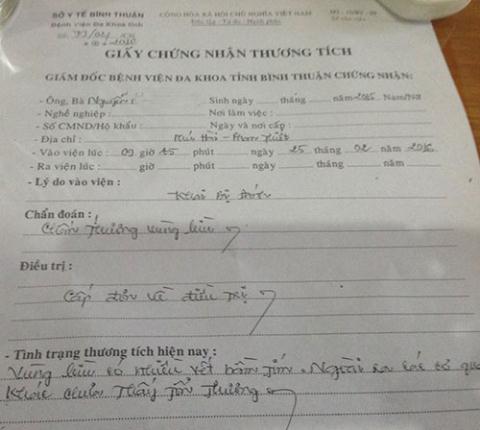 SỞ Y TẾ BÌNH THUẬN
Bệnh viện Đa Khoa tỉnh
CỘNG HÒA XÃ HỘI CHỦ NGHĨA VIỆT NAM
Độc lập - Tự do - Hạnh phúc
GIẤY CHỨNG NHẬN THƯƠNG TÍCH
GIÁM ĐỐC BỆNH VIỆN ĐA KHOA TỈNH BÌNH THUẬN CHỨNG NHẬN:
- Ông, Bà Sinh ngày tháng năm Nam/Nữ
- Nghề nghiệp : Nơi làm việc :
- Số CMND/Hộ khẩu : Ngày và nơi cấp :
- Địa chỉ : - Phan Thiết
- Vào viện lúc : 09 giờ 15 phút ngày 25 tháng 02 năm 2016
- Ra viện lúc : giờ phút ngày tháng năm
- Lý do vào viện :
Khai bị đánh
Chẩn đoán :
Chấn thương vùng lưng
Điều trị :
Cấp đơn về điều trị
- Tình trạng thương tích hiện nay :
Vùng có nhiều vết bầm tím. Ngoài ra các cơ
khác chưa thấy tổn thương